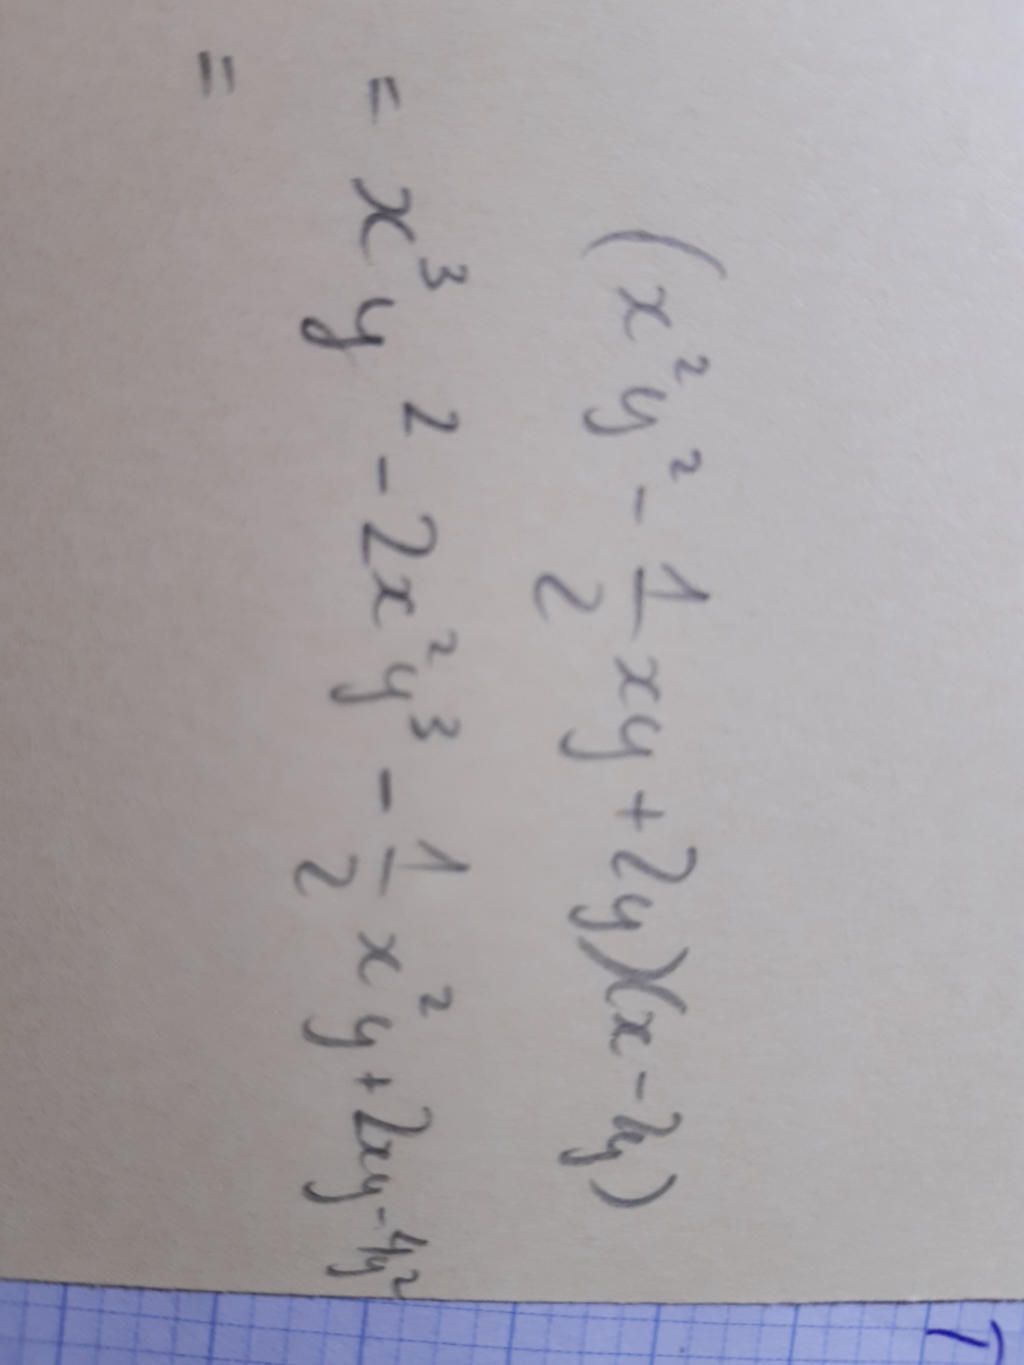 (x²y² - 1/2 xy + 2y)(x - 2y)
= x³y² - 2x²y³ - 1/2 x²y + 2xy - 4y²
=